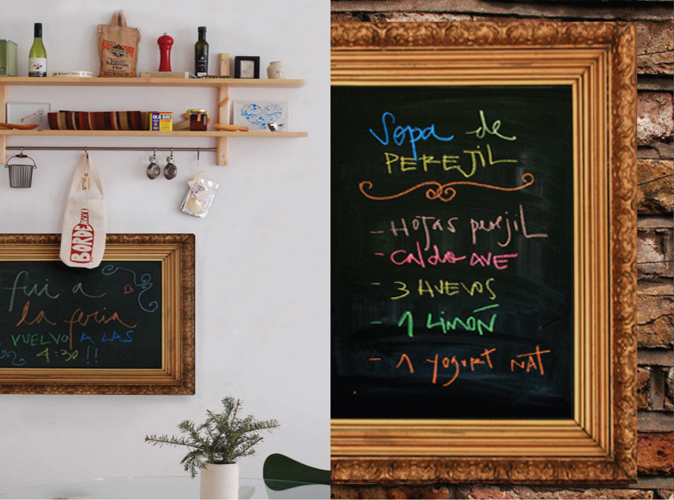 OLD BAY
BORDEAUX
fui a
la feria
VUELVO A LAS
4:30 !!
Sopa de
PEREJIL
- HOJAS perejIL
- CALdo AVE
- 3 HUEVOS
- 1 LIMON̄
- 1 yogurt NAT